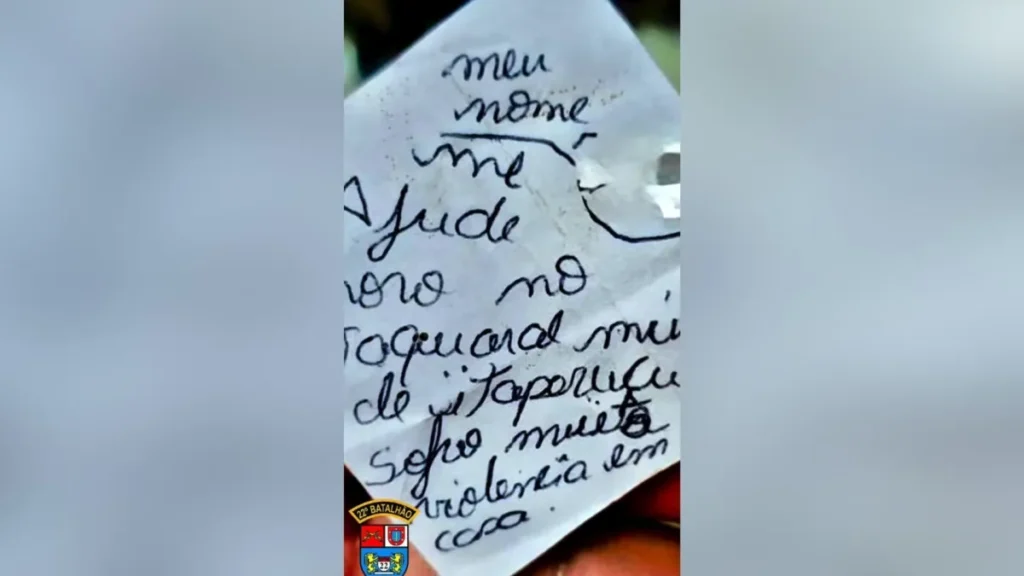 meu
nome
me
Ajude
moro no
taquaral mu
de itaperuçu
sofro muita
violencia em
casa.
22º BATALHÃO
22